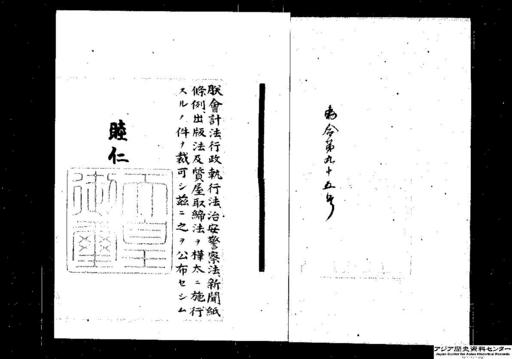 勅令第九十五号
朕會計法行政執行法治安警察法新聞紙
條例出版法及質屋取締法ヲ樺太ニ施行
スルノ件ヲ裁可シ茲ニ之ヲ公布セシム
睦仁
天皇御璽
アジア歴史資料センター
Japan Center for Asian Historical Records